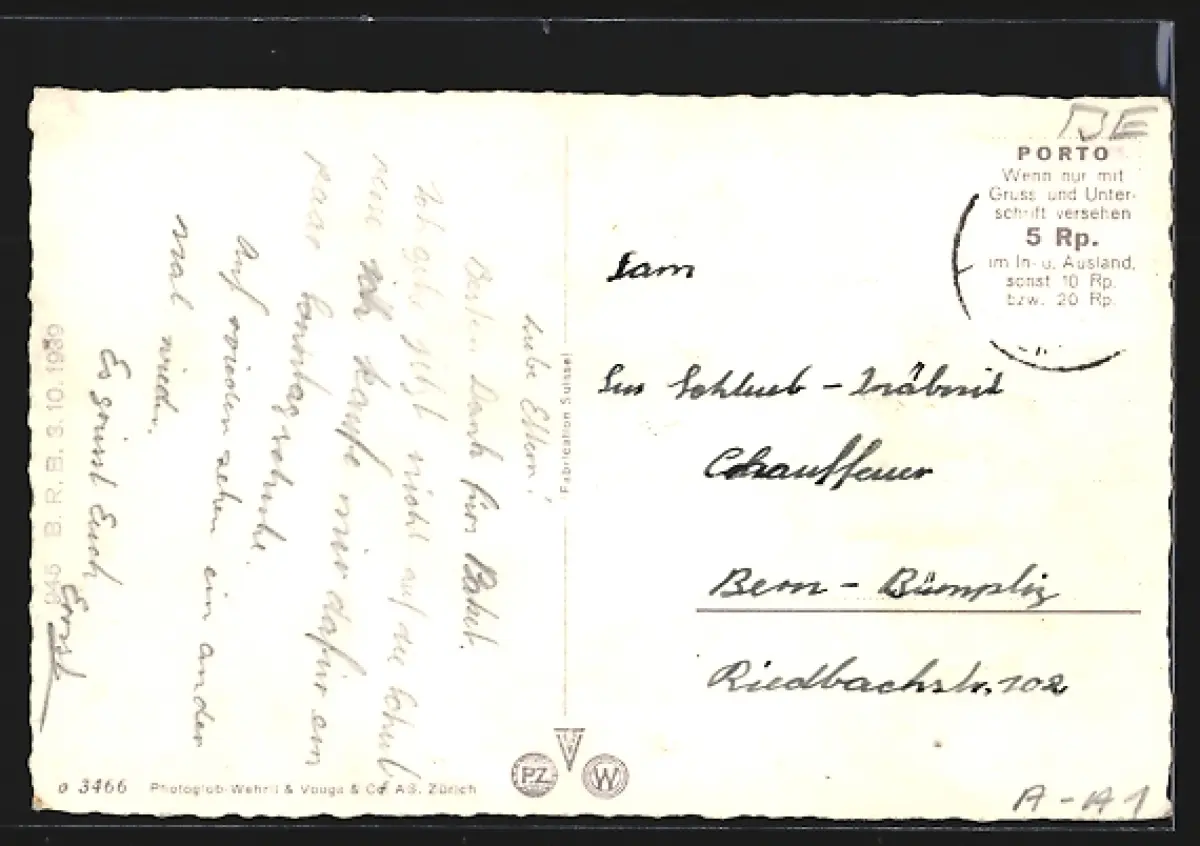 Liebe Eltern!
Besten Dank fürs Paket.
Ich gehe jetzt nicht auf die
reise ich kaufe mir dafür ein
paar Sonntagschuhe.
Auf wiedersehen ein ander
mal wieder.
Es grüsst Euch
Ernst
B. R. B. 3.10.1939
Fabrication Suisse
BE
PORTO
Wenn nur mit
Gruss und Unter-
schrift versehen
5 Rp.
im In- u. Ausland,
sonst 10 Rp.
bzw. 20 Rp.
Fam
Chauffeur
Bern - Bümpliz
Riedbachstr. 102
PZ
W
o 3466 Photoglob-Wehrli & Vouga & Co AG. Zürich
A-A1